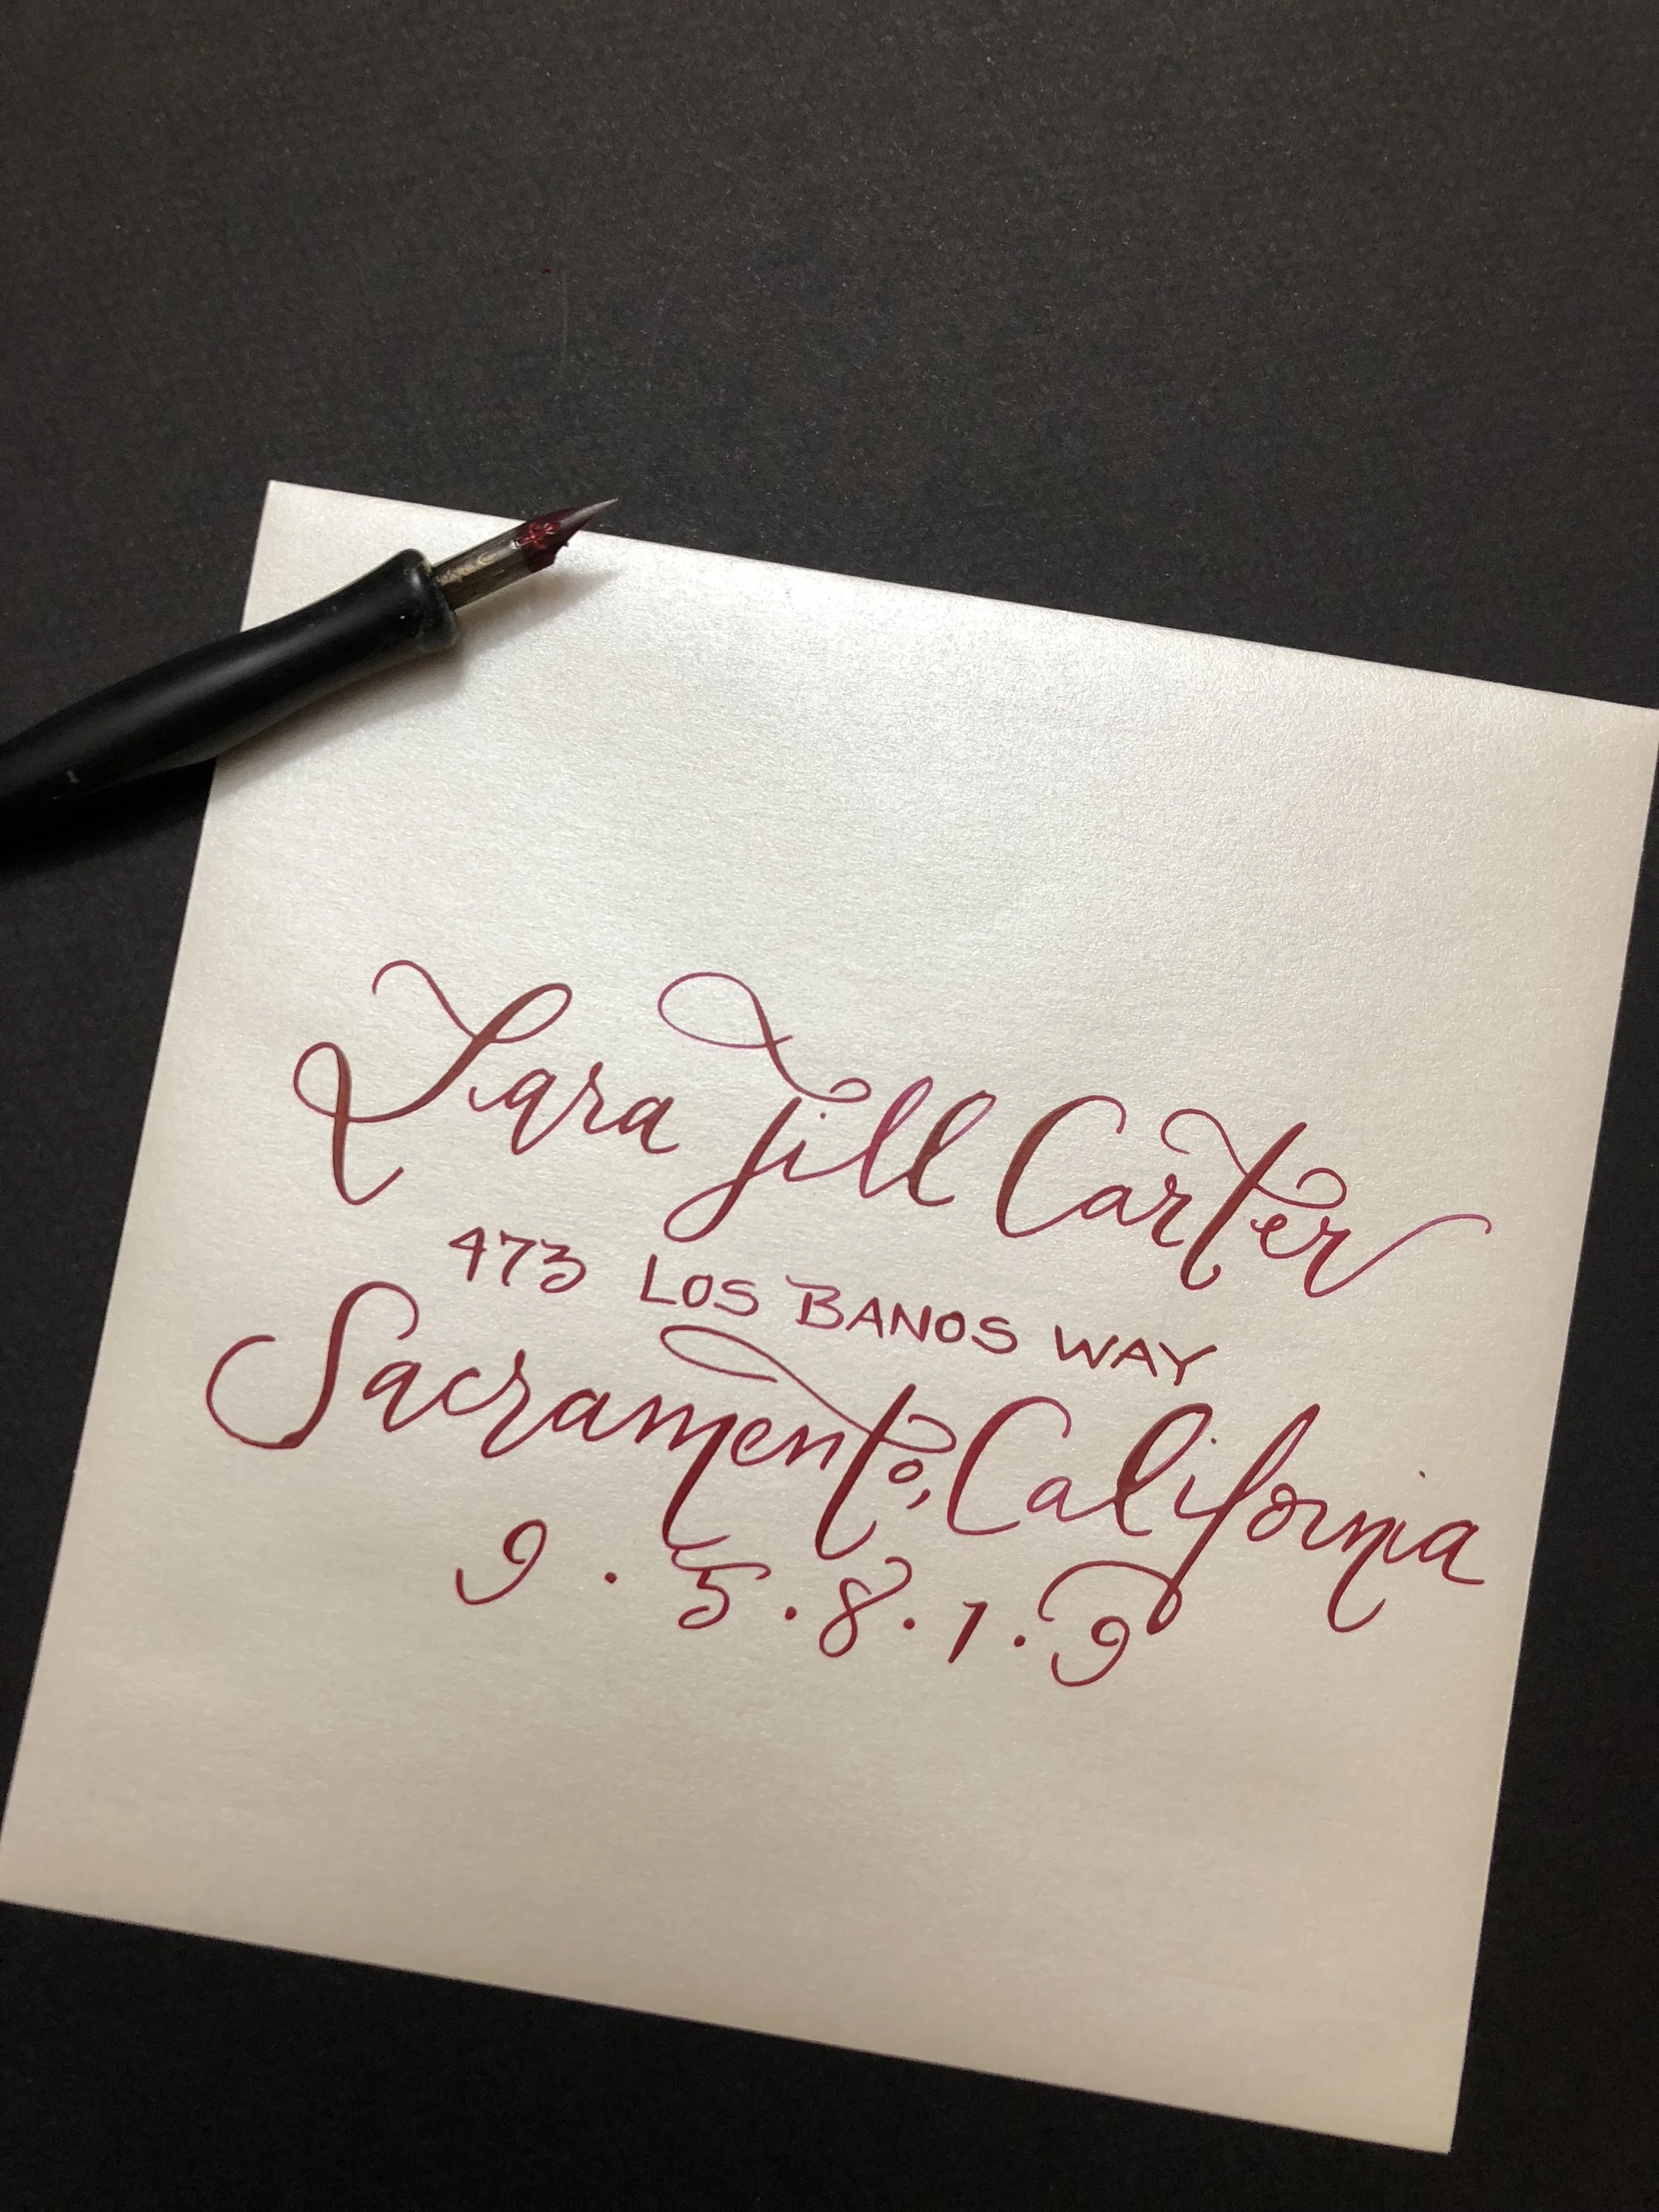 Lara Jill Carter
473 LOS BANOS WAY
Sacramento, California
9 · 5 · 8 · 1 · 9